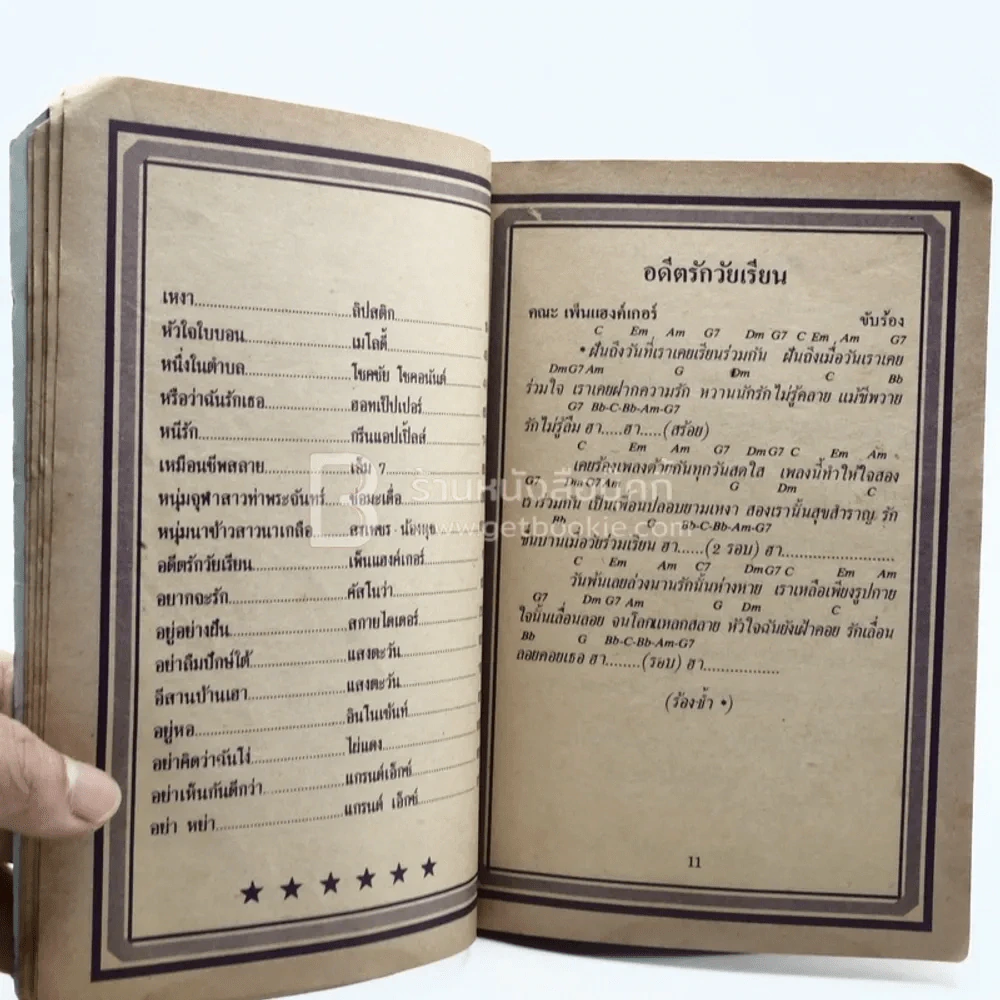 เหงา..........ลิปสติก..........
หัวใจใบบอน..........เมโลดี้..........
หนึ่งในตำบล..........โชคชัย โชคอนันต์..........
หรือว่าฉันรักเธอ..........ฮอทเป๊ปเปอร์..........
หนีรัก..........กรีนแอปเปิ้ลส์..........
เหมือนชีพสลาย..........เอ็ม 7..........
หนุ่มจุฬาสาวท่าพระจันทร์..........ช่อมะเดื่อ..........
หนุ่มนาข้าวสาวนาเกลือ..........
อดีตรักวัยเรียน..........เพ็นแฮงค์เกอร์..........
อยากจะรัก..........คัสโนว่า..........
อยู่อย่างฝัน..........สกายไดเดอร์..........
อย่าลืมปักษ์ใต้..........แสงตะวัน..........
อีสานบ้านเฮา..........แสงตะวัน..........
อยู่หอ..........อินโนเซ้นท์..........
อย่าคิดว่าฉันโง่..........ไผ่แดง..........
อย่าเห็นกันดีกว่า..........แกรนด์เอ็กซ์..........
อย่า หย่า..........แกรนด์ เอ็กซ์..........
★ ★ ★ ★ ★ ★
อดีตรักวัยเรียน
คณะ เพ็นแฮงค์เกอร์ ขับร้อง
C Em Am G7 Dm G7 C Em Am G7
*ฝันถึงวันที่เราเคยเรียนร่วมกัน ฝันถึงเมื่อวันเราเคย
Dm G7 Am G Dm C Bb
ร่วมใจ เราเคยฝากความรัก หวานนักรักไม่รู้คลาย แม้ชีพวาย
G7 Bb-C-Bb-Am-G7
รักไม่รู้ลืม ฮา.....ฮา.....(สร้อย)
C Em Am G7 Dm G7 C Em Am
เคยร้องเพลงด้วยกันทุกวันสดใส เพลงนี้ทำให้ใจสอง
G7 Dm G7 Am G Dm C
เราร่วมกัน เป็นเพื่อนปลอบยามเหงา สองเรานั้นสุขสำราญ รัก
Bb G Bb-C-Bb-Am-G7
ชื่นบานเมื่อวัยร่วมเรียน ฮา......(2 รอบ) ฮา....................
C Em Am C7 Dm G7 C Em Am
วันพ้นเลยล่วงนานรักนั้นห่างหาย เราเหลือเพียงรูปกาย
G7 Dm G7 Am G Dm C
ใจนั้นเลื่อนลอย จนโลกแหลกสลาย หัวใจฉันยังเฝ้าคอย รักเลื่อน
Bb G Bb-C-Bb-Am-G7
ลอยคอยเธอ ฮา........(รอบ) ฮา.................
(ร้องซ้ำ *)
11
B ร้านหนังสือบุ๊คกี้
www.getbookie.com